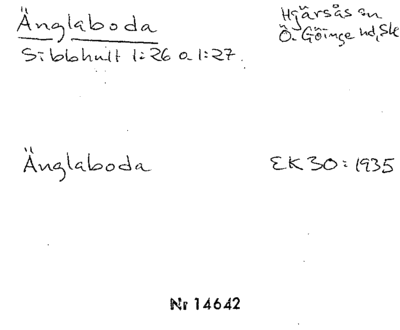 Änglaboda
Hjärsås sn
Sibbhult 1:26 o 1:27.
Ö. Göinge hd, Sk
Änglaboda
EK 30:1935
Nr 14642